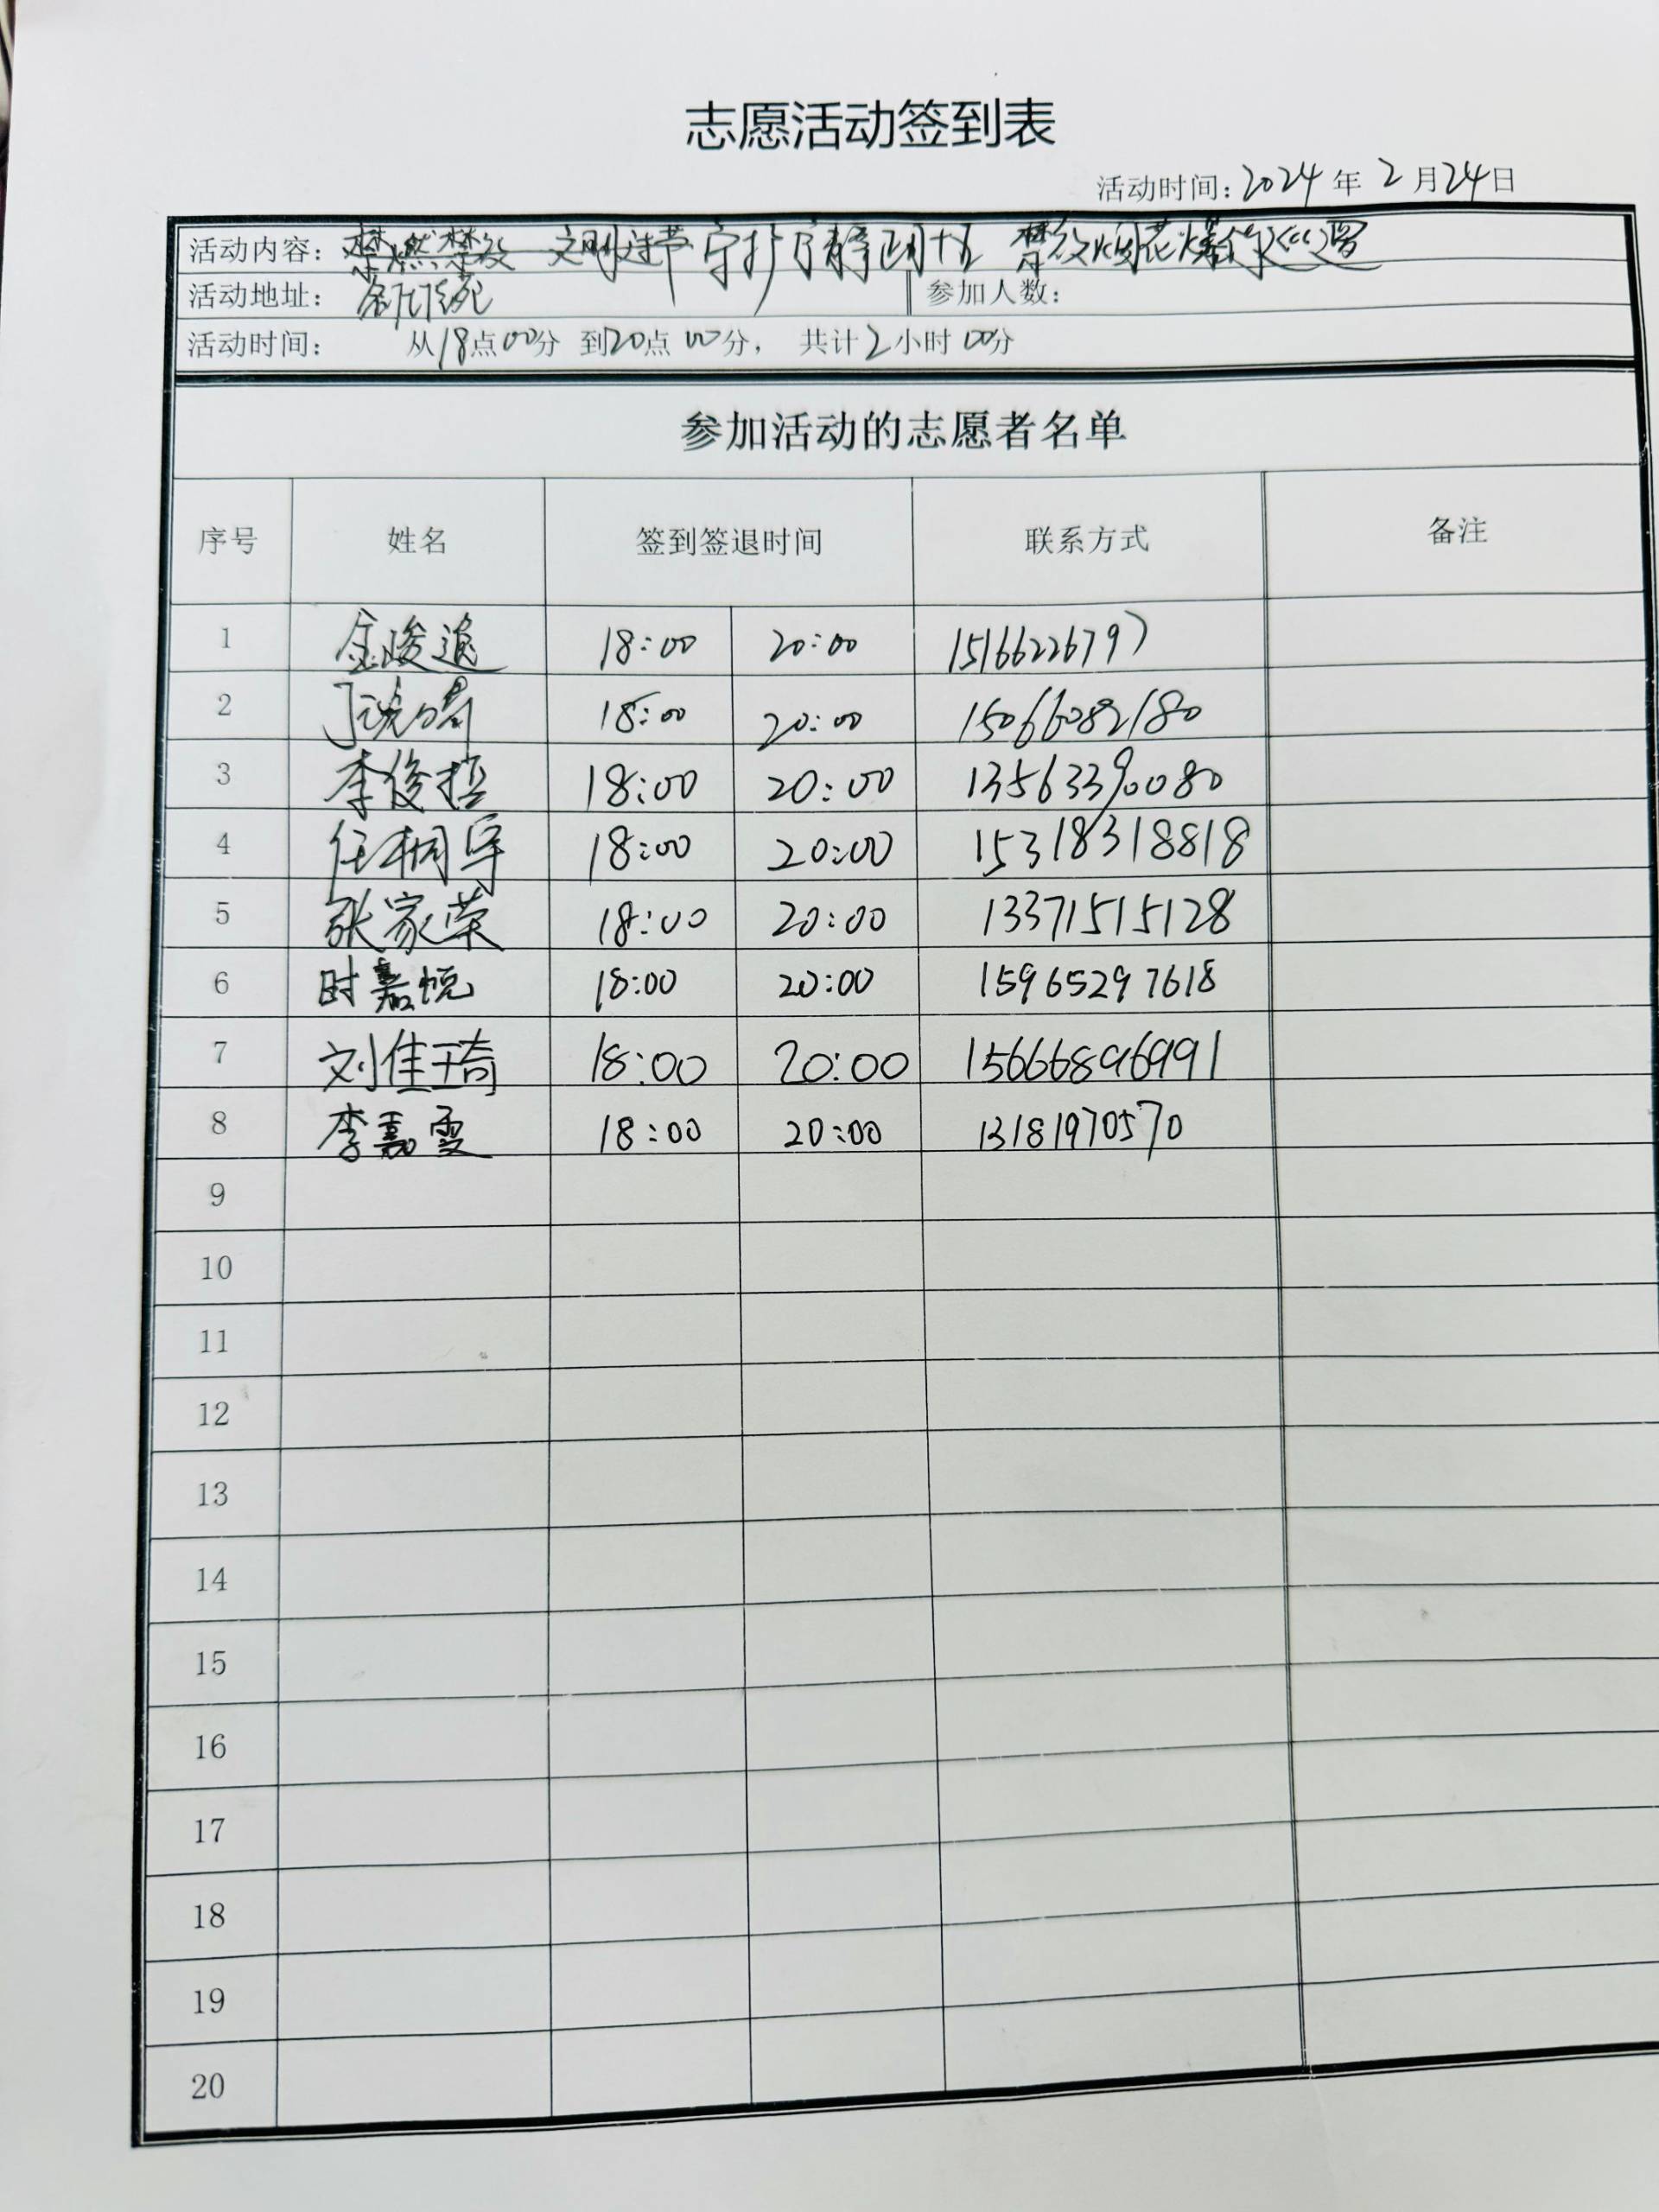 志愿活动签到表
活动时间：2024年2月24日
活动内容：禁燃禁放 文明过节 守护宁静 正月十五 禁放烟花爆竹巡逻
活动地址： 参加人数：
活动时间： 从18点00分 到20点00分， 共计2小时00分
参加活动的志愿者名单
序号 姓名 签到签退时间 联系方式 备注
1 金峻逸 18:00 20:00 15166226797
2 18:00 20:00 15066082180
3 李俊哲 18:00 20:00 13563390080
4 任桐宇 18:00 20:00 15318318818
5 张家荣 18:00 20:00 13371515128
6 时嘉悦 18:00 20:00 15965297618
7 刘佳琦 18:00 20:00 15666896991
8 李嘉雯 18:00 20:00 13181970570
9
10
11
12
13
14
15
16
17
18
19
20